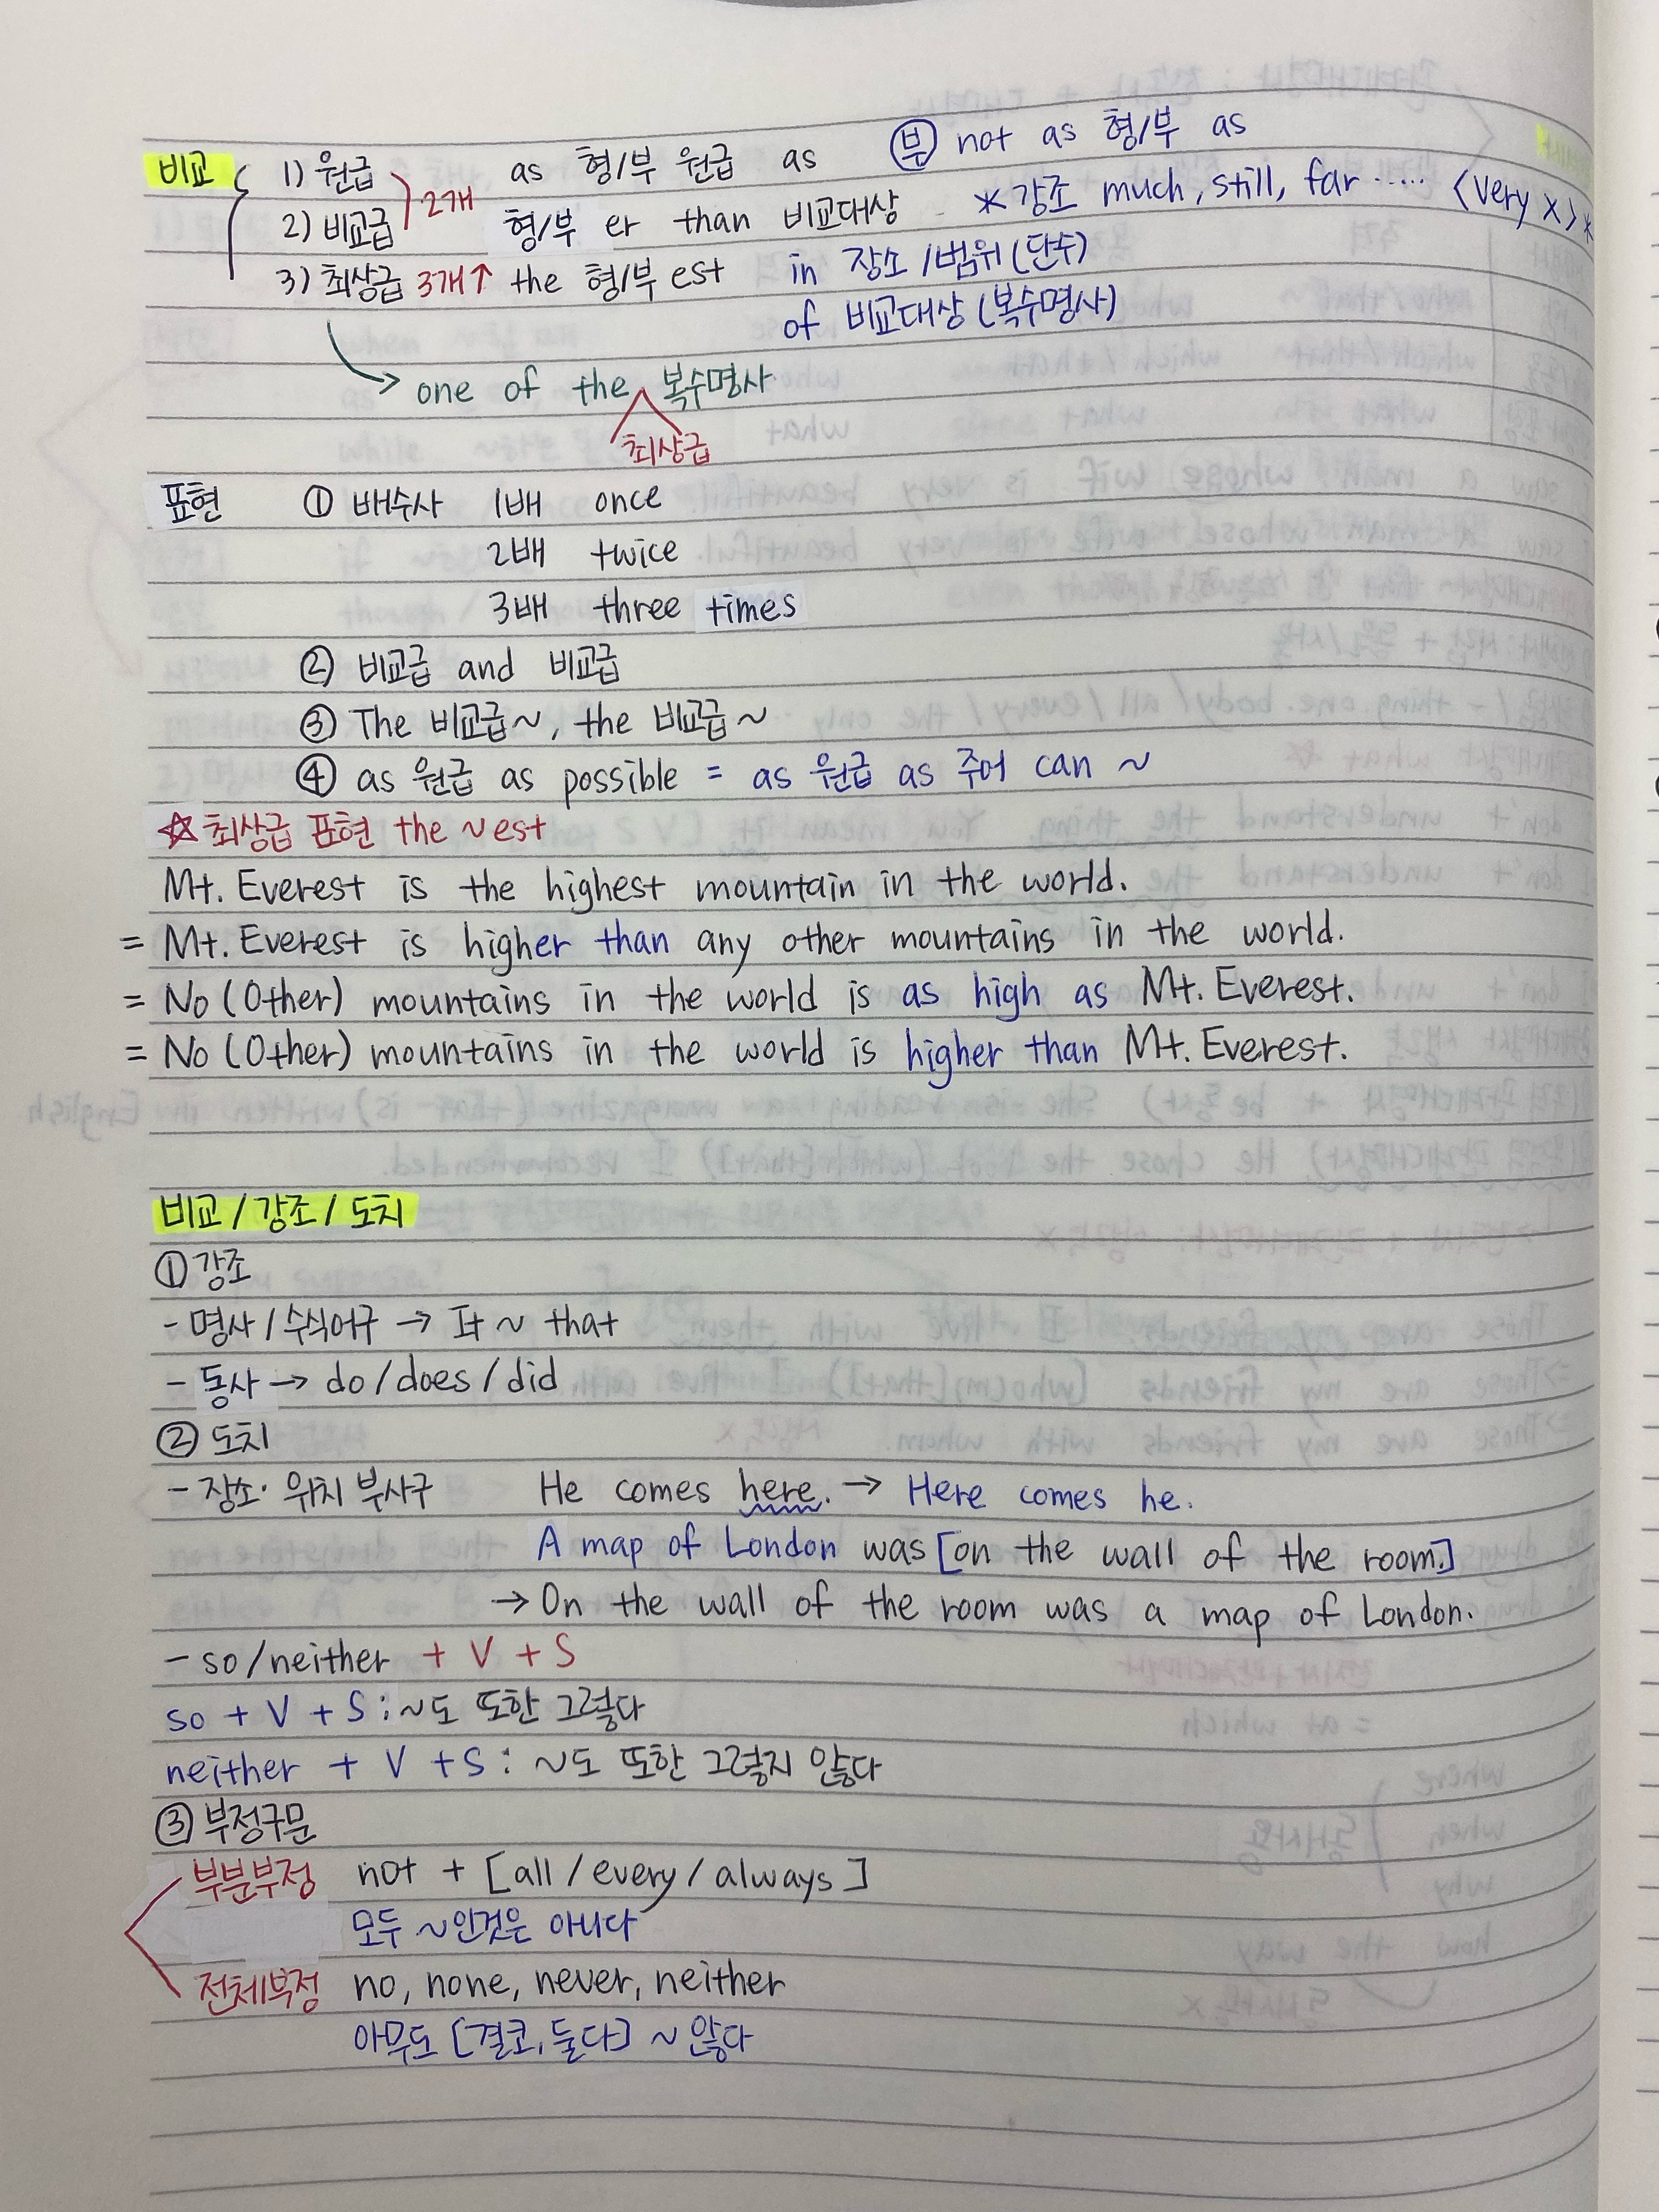 비교 1) 원급 as 형/부 원급 as 부 not as 형/부 as
2) 비교급 2개 형/부 er than 비교대상 * 강조 much, still, far ..... <very x>*
3) 최상급 3개↑ the 형/부 est in 장소/범위(단수)
of 비교대상(복수명사)
→ one of the 복수명사
최상급
표현 ① 배수사 1배 once
2배 twice
3배 three times
② 비교급 and 비교급
③ The 비교급~, the 비교급~
④ as 원급 as possible = as 원급 as 주어 can ~
☆최상급 표현 the ~est
Mt. Everest is the highest mountain in the world.
= Mt. Everest is higher than any other mountains in the world.
= No (Other) mountains in the world is as high as Mt. Everest.
= No (Other) mountains in the world is higher than Mt. Everest.
비교/강조/도치
① 강조
- 명사/수식어구 → It ~ that
- 동사 → do/does/did
② 도치
- 장소· 위치 부사구 He comes here. → Here comes he.
A map of London was [on the wall of the room.]
→ On the wall of the room was a map of London.
- so/neither + V + S
so + V + S : ~도 또한 그렇다
neither + V + S : ~도 또한 그렇지 않다
③ 부정구문
부분부정 not + [all/every/always]
모두 ~인것은 아니다
전체부정 no, none, never, neither
아무도 [결코, 둘다] ~ 않다